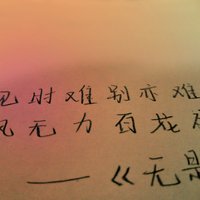 见时难别亦难
风无力百花
——《无题